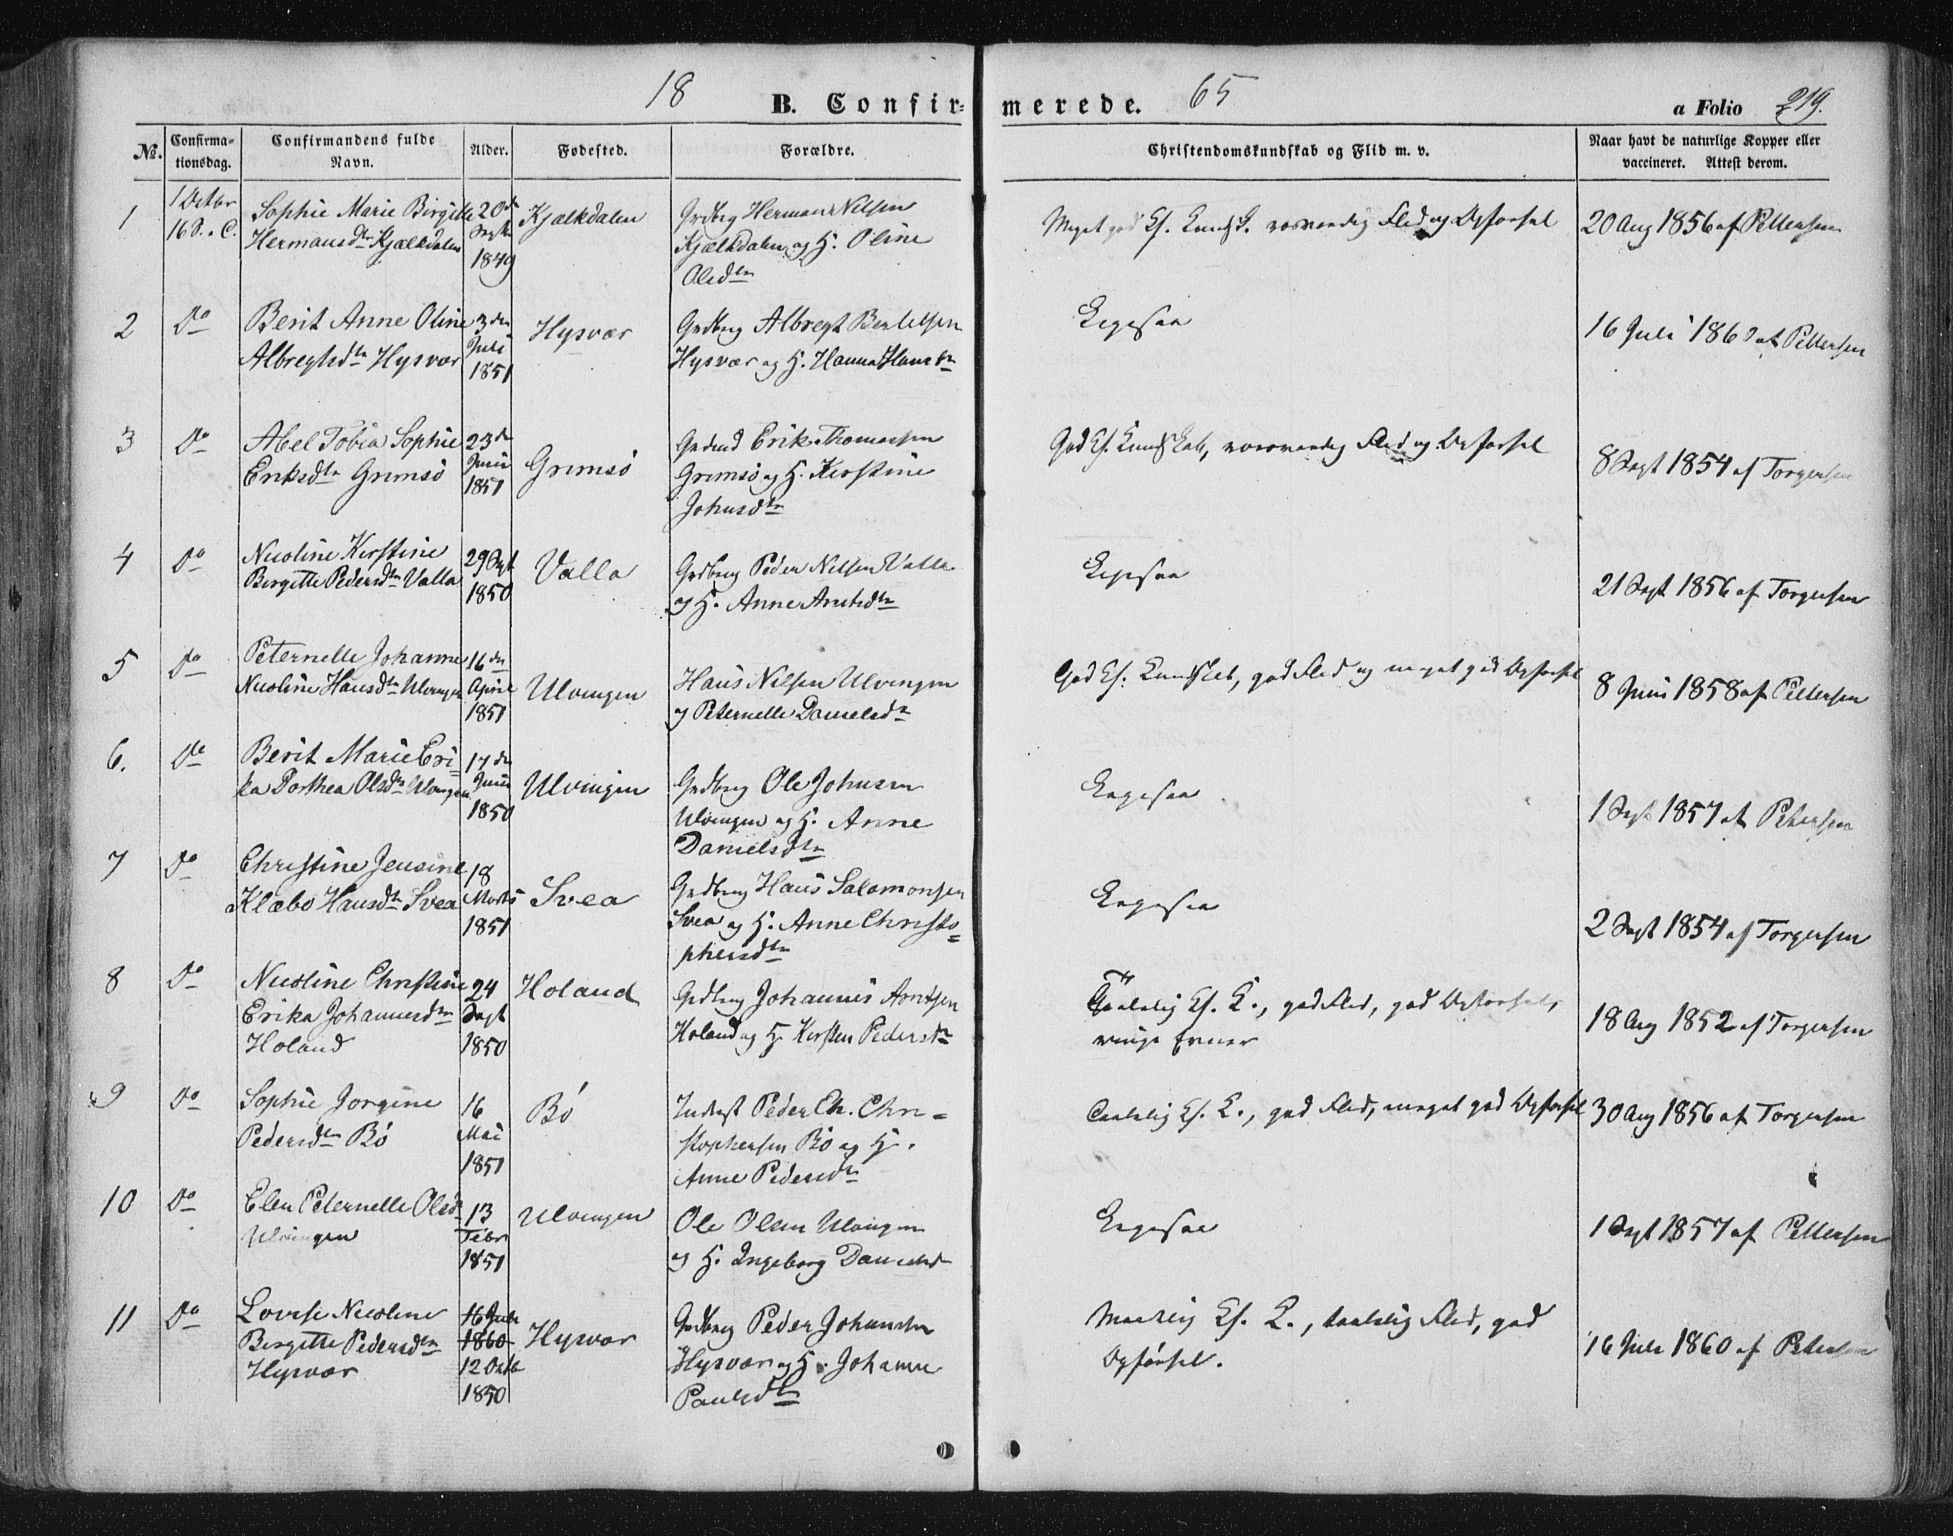 18 65
B. Confirmerede.
a Folio 219.
No. Confirmationsdag. Confirmandens fulde Navn. Alder. Fødested. Forældre. Christendomskundskab og Flid m. v. Naar havt de naturlige Kopper eller vaccineret. Attest derom.
1 1 Octbr 16 S. e. C. Sophie Marie Birgitte Hermansdtr Kjælkdalen 20de Septr 1849 Kjælkdalen Grdbrg Herman Nilsen Kjælkdalen og H. Oline Olsdtr Meget god Ch. Kundsk. rosværdig Flid og Opførsel 20 Aug 1856 af Pettersen
2 Do Berit Anne Oline Albregtsdtr Hysvær 3die Juli 1851 Hysvær Grdbrg Albregt Bertelsen Hysvær og H. Hanna Hansdtr Ligesaa 16 Juli 1860 af Pettersen
3 Do Abel Tobia Sophie Eriksdtr Grimsö 23de Juni 1851 Grimsö Erik Thomassen Grimsö og H. Kirstine Johnsdtr God Ch. Kundskab, rosværdig Flid og Opførsel 8 Sept 1854 af Torgersen
4 Do Nicoline Kirstine Birgitte Pedersdtr Valla 29 Sept 1850 Valla Grdbrg Peder Nilsen Valla og H. Anne Arntsdtr Ligesaa 21 Sept 1856 af Torgersen
5 Do Peternelle Johanne Nicoline Hansdtr Ulvingen 16de April 1851 Ulvingen Hans Nilsen Ulvingen og Peternelle Danielsdtr God Ch. Kundskab, god Flid og meget god Opførsel 8 Juni 1858 af Pettersen
6. Do Berit Marie Erika Dorthea Olsdtr Ulvingen 17de Juni 1850 Ulvingen Grdbrg Ole Johnsen Ulvingen og H. Anne Danielsdtr Ligesaa 1 Sept 1857 af Petersen
7 Do Christine Jensine Klæbo Hansdtr Svea 18 Marts 1851 Svea Grdbrg Hans Salamonsen Svea og H. Anne Christophersdtr Ligesaa 2 Sept 1854 af Torgersen
8 Do Nicoline Christine Erika Johannesdtr Holand 24 Sept 1850 Holand Grdbrg Johannes Arntsen Holand og H. Kirsten Pedersdtr Taalelig Ch. K., god Flid, god Opførsel, ringe Evner 18 Aug 1852 af Torgersen
9 Do Sophie Jorgine Pedersdtr Bö 16 Mai 1851 Bö Inderst Peder Ch. Christophersen Bö og H. Anne Pedersdtr Taalelig Ch. K., god Flid, meget god Opførsel 30 Aug 1856 af Torgersen
10 Do Elen Peternelle Olsd Ulvingen 13 Febr 1851 Ulvingen Ole Olsen Ulvingen og H. Ingeborg Danielsd Ligesaa 1 Sept 1857 af Pettersen
11 Do Lovise Nicoline Birgitte Pedersdtr Hysvær 16 Juli 1860 12 Octb 1850 Hysvær Grdbrg Peder Johansen Hysvær og H. Johanne Paulsdtr Maadelig Ch. K., taalelig Flid, god Opførsel. 16 Juli 1860 af Petersen